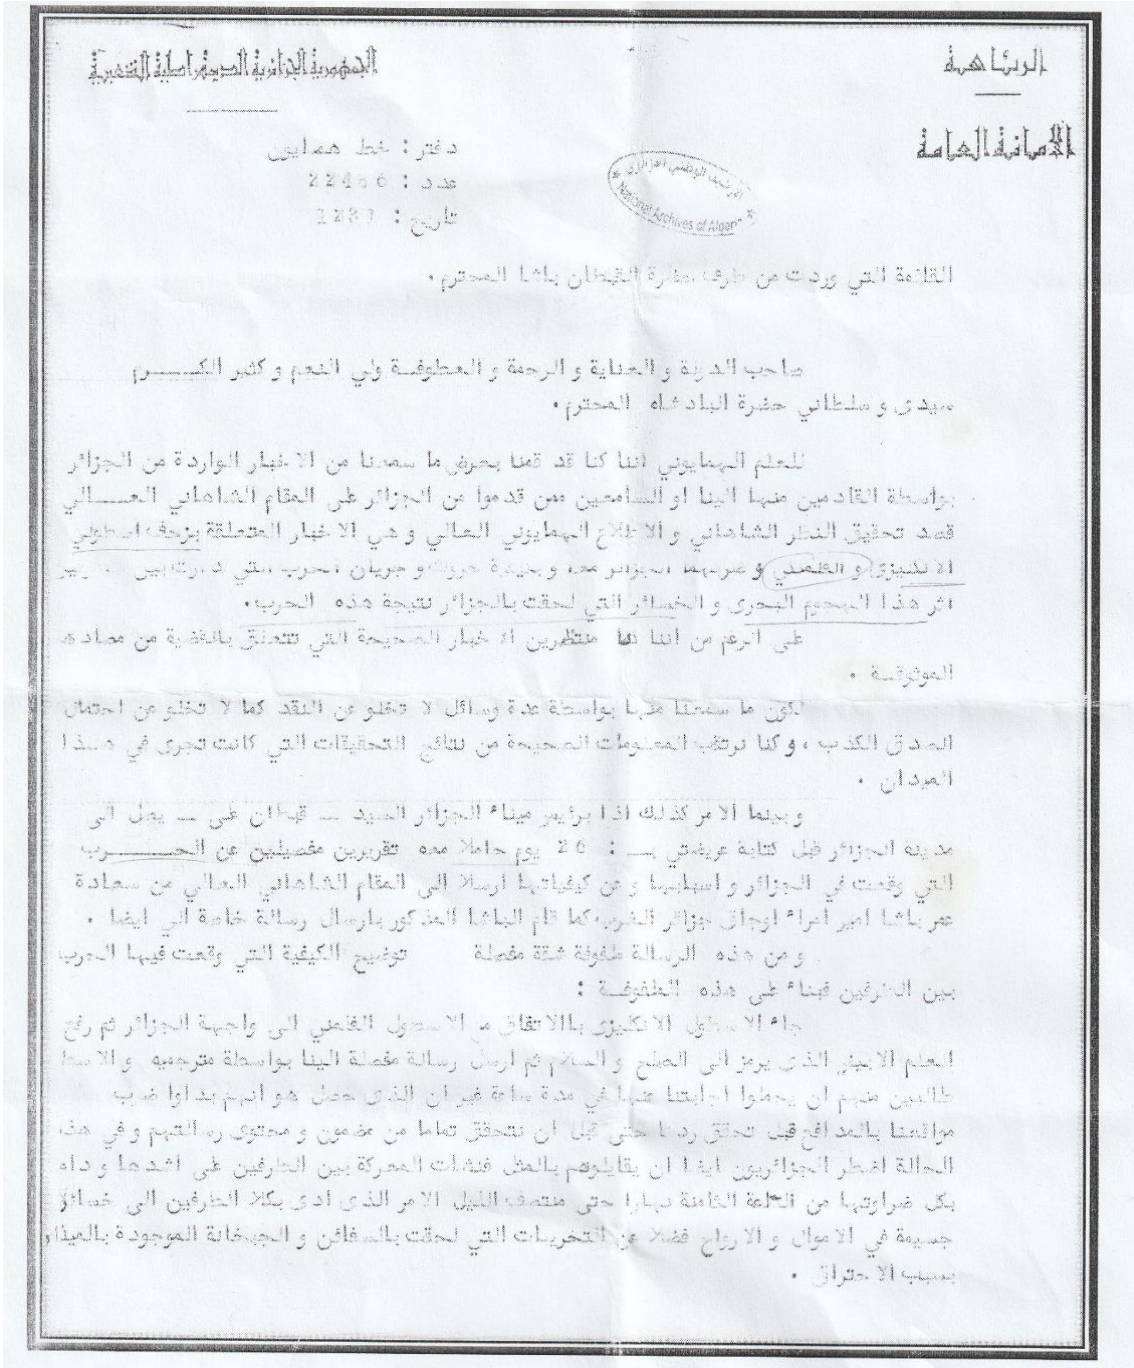 الجمهورية الجزائرية الديمقراطية الشعبية
الرئاسة
الأمانة العامة
دفتر : خط همايون
عدد : 22486
تاريخ : 1231
الارشيف الوطني الجزائري
National Archives of Algeria
القائمة التي وردت من طرف حضرة القبطان باشا المحترم .
صاحب الدولة و العناية و الرحمة و العطوفـة ولي النعم و كثير الكـــرم
سيدى و سلطاني حضرة البادشاه المحترم .
للعلم الهمايوني اننا كنا قد قمنا بعرض ما سمعنا من الاخبار الواردة من الجزائر
بواسطة القادمين منها الينا او السامعين ممن قدموا من الجزائر على المقام الشاهاني العـــالي
قصد تحقيق النظر الشاهاني و الاطلاع الهمايوني العالي و هي الاخبار المتعلقة بزحف اسطولي
الانكليزى و الفلمني و ضربهما الجزائر معا و بنتيجة حروث و جريان الحرب التي دارت بين
اثر هذا الهجوم البحرى و الخسائر التي لحقت بالجزائر نتيجة هذه الحرب .
على الرغم من اننا كنا منتظرين الاخبار الصحيحة التي تتعلق بالقضية من مصادها
الموثوقـة .
لكون ما سمعنا منها بواسطة عدة وسائل لا تخلو عن النقد كما لا تخلو عن احتمال
الصدق الكذب ، و كنا نرتقب المعلومات الصحيحة من نتائج التحقيقات التي كانت تجرى في هـذا
الميدان .
و بينما الامر كذلك اذا برئيس ميناء الجزائر السيد ــ قبطان على ــ يصل الى
مدينه الجزائر قبل كتابة عريضتي بــ : 26 يوم حاملا معه تقريرين مفصلين عن الحـــرب
التي وقعت في الجزائر و اسبابها و عن كيفياتها ارسلا الى المقام الشاهاني العالي من سعادة
عمر باشا امير امراء اوجاق جزائر الغرب كما قام الباشا المذكور بارسال رسالة خاصة الي ايضا .
و من هذه الرسالة ملفوفة شقة مفصلة توضيح الكيفية التي وقعت فيها الحرب
بين الطرفين فبناء على هذه الملفوفـة :
جاء الاسطول الانكليزى بالاتفاق مع الاسطول الفلمني الى واجهة الجزائر ثم رفع
العلم الابيض الذى يرمز الى الصلح و السلام ثم ارسل رسالة مفصلة الينا بواسطة مترجميه و الاسط
طالبين منهم ان يحملوا اجابتنا عنها في مدة ساعة غير ان الذى حصل هو انهم بداوا ضرب
مواقعنا بالمدافع قبل تحقق ردنا حتى قبل ان نتحقق تماما من مضمون و محتوى رسالتهم و في هذه
الحالة اضطر الجزائريون ايضا ان يقابلوهم بالمثل فنشات المعركة بين الطرفين على اشدها و دام
بكل ضراوتها من الساعة الثامنة نهارا حتى منتصف الليل الامر الذى ادى بكلا الطرفين الى خسائر
جسيمة في الاموال و الارواح فضلا عن التخريبات التي لحقت بالسفائن و الجبخانة الموجودة بالميناء
بسبب الاحتراق .